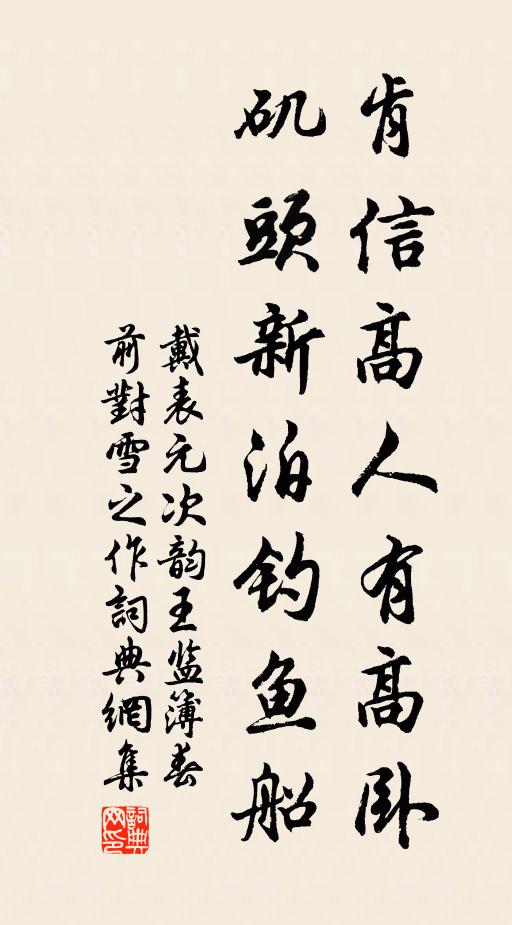 肯信高人有高卧
矶頭新泊钓鱼船
戴表元次韵王监簿春
前對雪之作詞典網集
詞典
网印